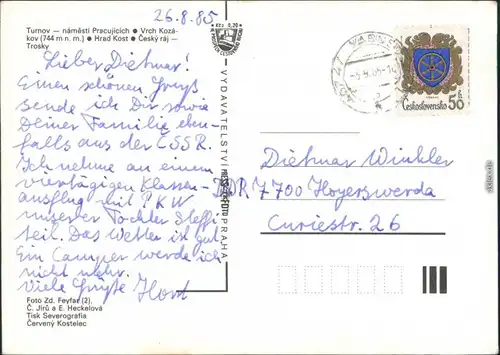 26.8.85
Turnov – náměstí Pracujících ● Vrch Kozá-
kov (744 m n. m.) ● Hrad Kost ● Český ráj –
Trosky
Kčs 0,20
Lieber Dietmar!
Einen schönen Gruß
sende ich Dir sowie
Deiner Familie eben-
falls aus der ČSSR.
Ich nehme an einem
viertägigen Klassen-
ausflug mit PKW
unserer Tochter Steffi
teil. Das Wetter ist gut
Ein Camper werde ich
nicht mehr.
Viele Grüße Horst
Foto Zd. Feyfar (2),
Č. Jirů a E. Heckelová
Tisk Severografia
Červený Kostelec
VYDAVATELSTVÍ
PRAHA
Československo 50
Dietmar Winkler
DDR 7700 Hoyerswerda
Curiestr. 26